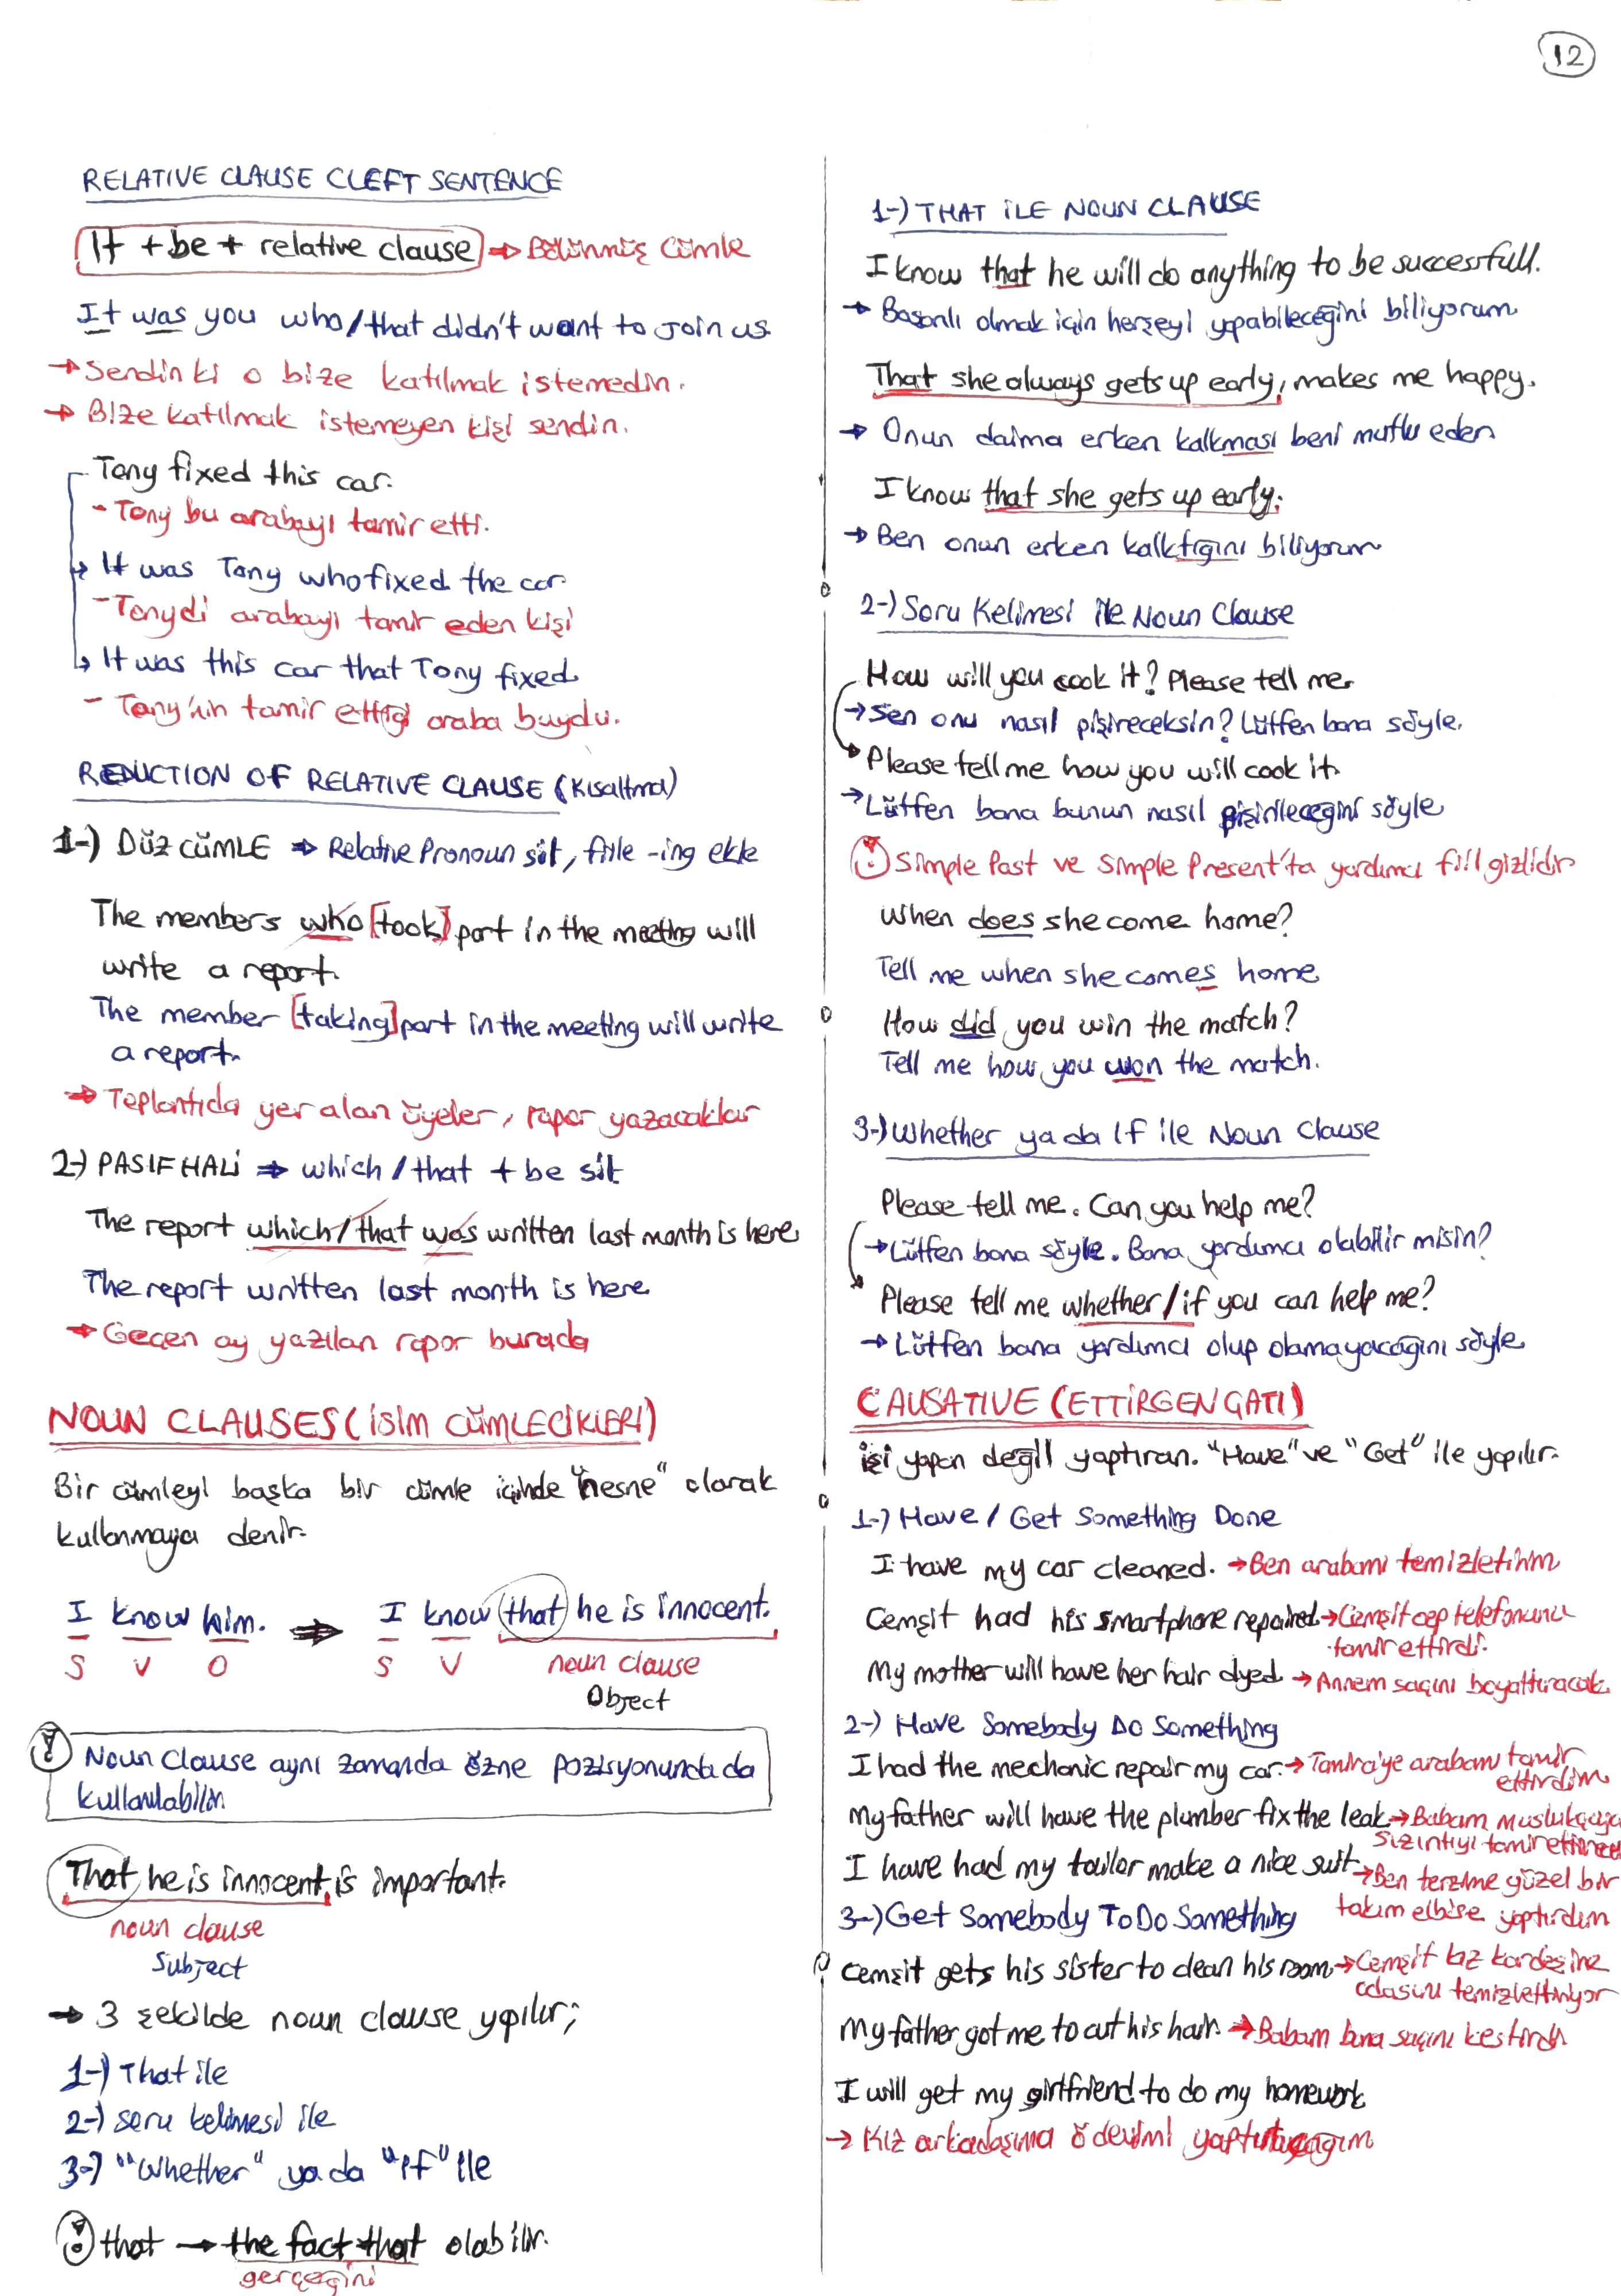 12
RELATIVE CLAUSE CLEFT SENTENCE
It + be + relative clause → Bölünmüş Cümle
It was you who/that didn't want to join us
→ Sendin ki o bize katılmak istemedin.
→ Bize katılmak istemeyen kişi sendin.
Tony fixed this car.
- Tony bu arabayı tamir etti.
→ It was Tony who fixed the car
- Tonydi arabayı tamir eden kişi
→ It was this car that Tony fixed
- Tony'nin tamir ettiği araba buydu.
REDUCTION OF RELATIVE CLAUSE (Kısaltma)
1-) DÜZ CÜMLE → Relative Pronoun sil, fiile -ing ekle
The members who [took] part in the meeting will
write a report.
The member [taking] part in the meeting will write
a report.
→ Toplantıda yer alan üyeler, rapor yazacaklar
2-) PASIF HALİ → which / that + be sil
The report which/that was written last month is here
The report written last month is here
→ Geçen ay yazılan rapor burada
NOUN CLAUSES (İSİM CÜMLECİKLERİ)
Bir cümleyi başka bir cümle içinde "nesne" olarak
kullanmaya denir.
I know him. → I know that he is innocent.
S V O S V noun clause
Object
! Noun Clause aynı zamanda özne pozisyonunda da
kullanılabilir.
That he is innocent, is important.
noun clause
Subject
→ 3 şekilde noun clause yapılır;
1-) That ile
2-) soru kelimesi ile
3-) "Whether" ya da "If" ile
! that → the fact that olabilir.
gerçeğini
1-) THAT İLE NOUN CLAUSE
I know that he will do anything to be successfull.
→ Başarılı olmak için herşeyi yapabileceğini biliyorum
That she always gets up early, makes me happy.
→ Onun daima erken kalkması beni mutlu eden
I know that she gets up early.
→ Ben onun erken kalktığını biliyorum
2-) Soru Kelimesi ile Noun Clause
How will you cook it? Please tell me
→ Sen onu nasıl pişireceksin? Lütfen bana söyle.
Please tell me how you will cook it
→ Lütfen bana bunun nasıl pişirileceğini söyle
! Simple Past ve Simple Present'ta yardımcı fiil gizlidir
When does she come home?
Tell me when she comes home
How did you win the match?
Tell me how you won the match.
3-) Whether ya da If ile Noun Clause
Please tell me. Can you help me?
→ Lütfen bana söyle. Bana yardımcı olabilir misin?
Please tell me whether/if you can help me?
→ Lütfen bana yardımcı olup olamayacağını söyle
CAUSATIVE (ETTİRGEN ÇATI)
işi yapan değil yaptıran. "Have" ve "Get" ile yapılır.
1-) Have / Get Something Done
I have my car cleaned. → Ben arabamı temizletirim
Cemşit had his smartphone repaired → Cemşit cep telefonunu
tamir ettirdi.
My mother will have her hair dyed → Annem saçını boyattıracak
2-) Have Somebody Do Something
I had the mechanic repair my car. → Tamirciye arabamı tamir
ettirdim
My father will have the plumber fix the leak → Babam muslukçuya
sızıntıyı tamir ettirecek
I have had my tailor make a nice suit → Ben terzime güzel bir
takım elbise yaptırdım
3-) Get Somebody To Do Something
Cemşit gets his sister to clean his room → Cemşit kız kardeşine
odasını temizlettiriyor
My father got me to cut his hair → Babam bana saçını kestirdi
I will get my girlfriend to do my homework
→ Kız arkadaşıma ödevimi yaptırtacağım